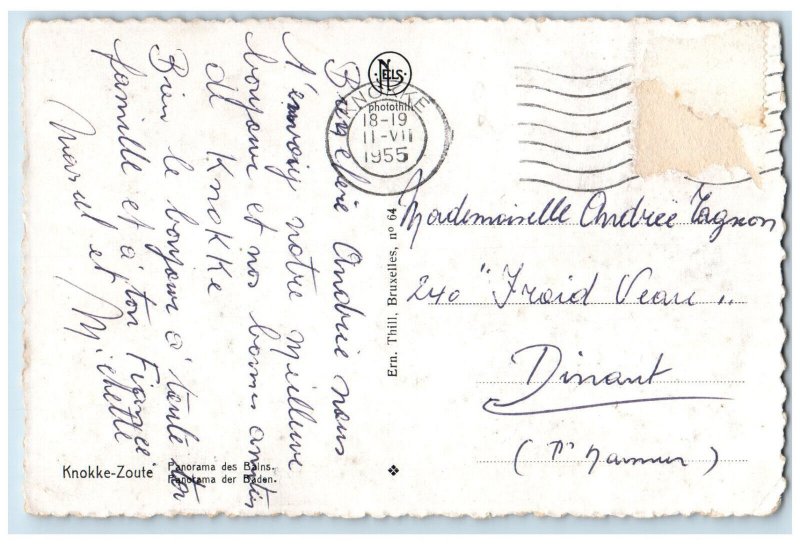 Bien chère Andrée nous
t'envoiy notre meilleure
bonjour et nos bonnes amitiés
de Knokke
Bien le bonjour à toute ta
famille et à ton Fiancé
Marcel et Michelle
NELS
photothill
KNOKKE
18-19
11-VII
1955
Ern. Thill, Bruxelles, nº 64
Mademoiselle Andrée Tagnon
240 "Froid Veau"
Dinant
(Pr Namur)
Knokke-Zoute Panorama des Bains.
Panorama der Baden.